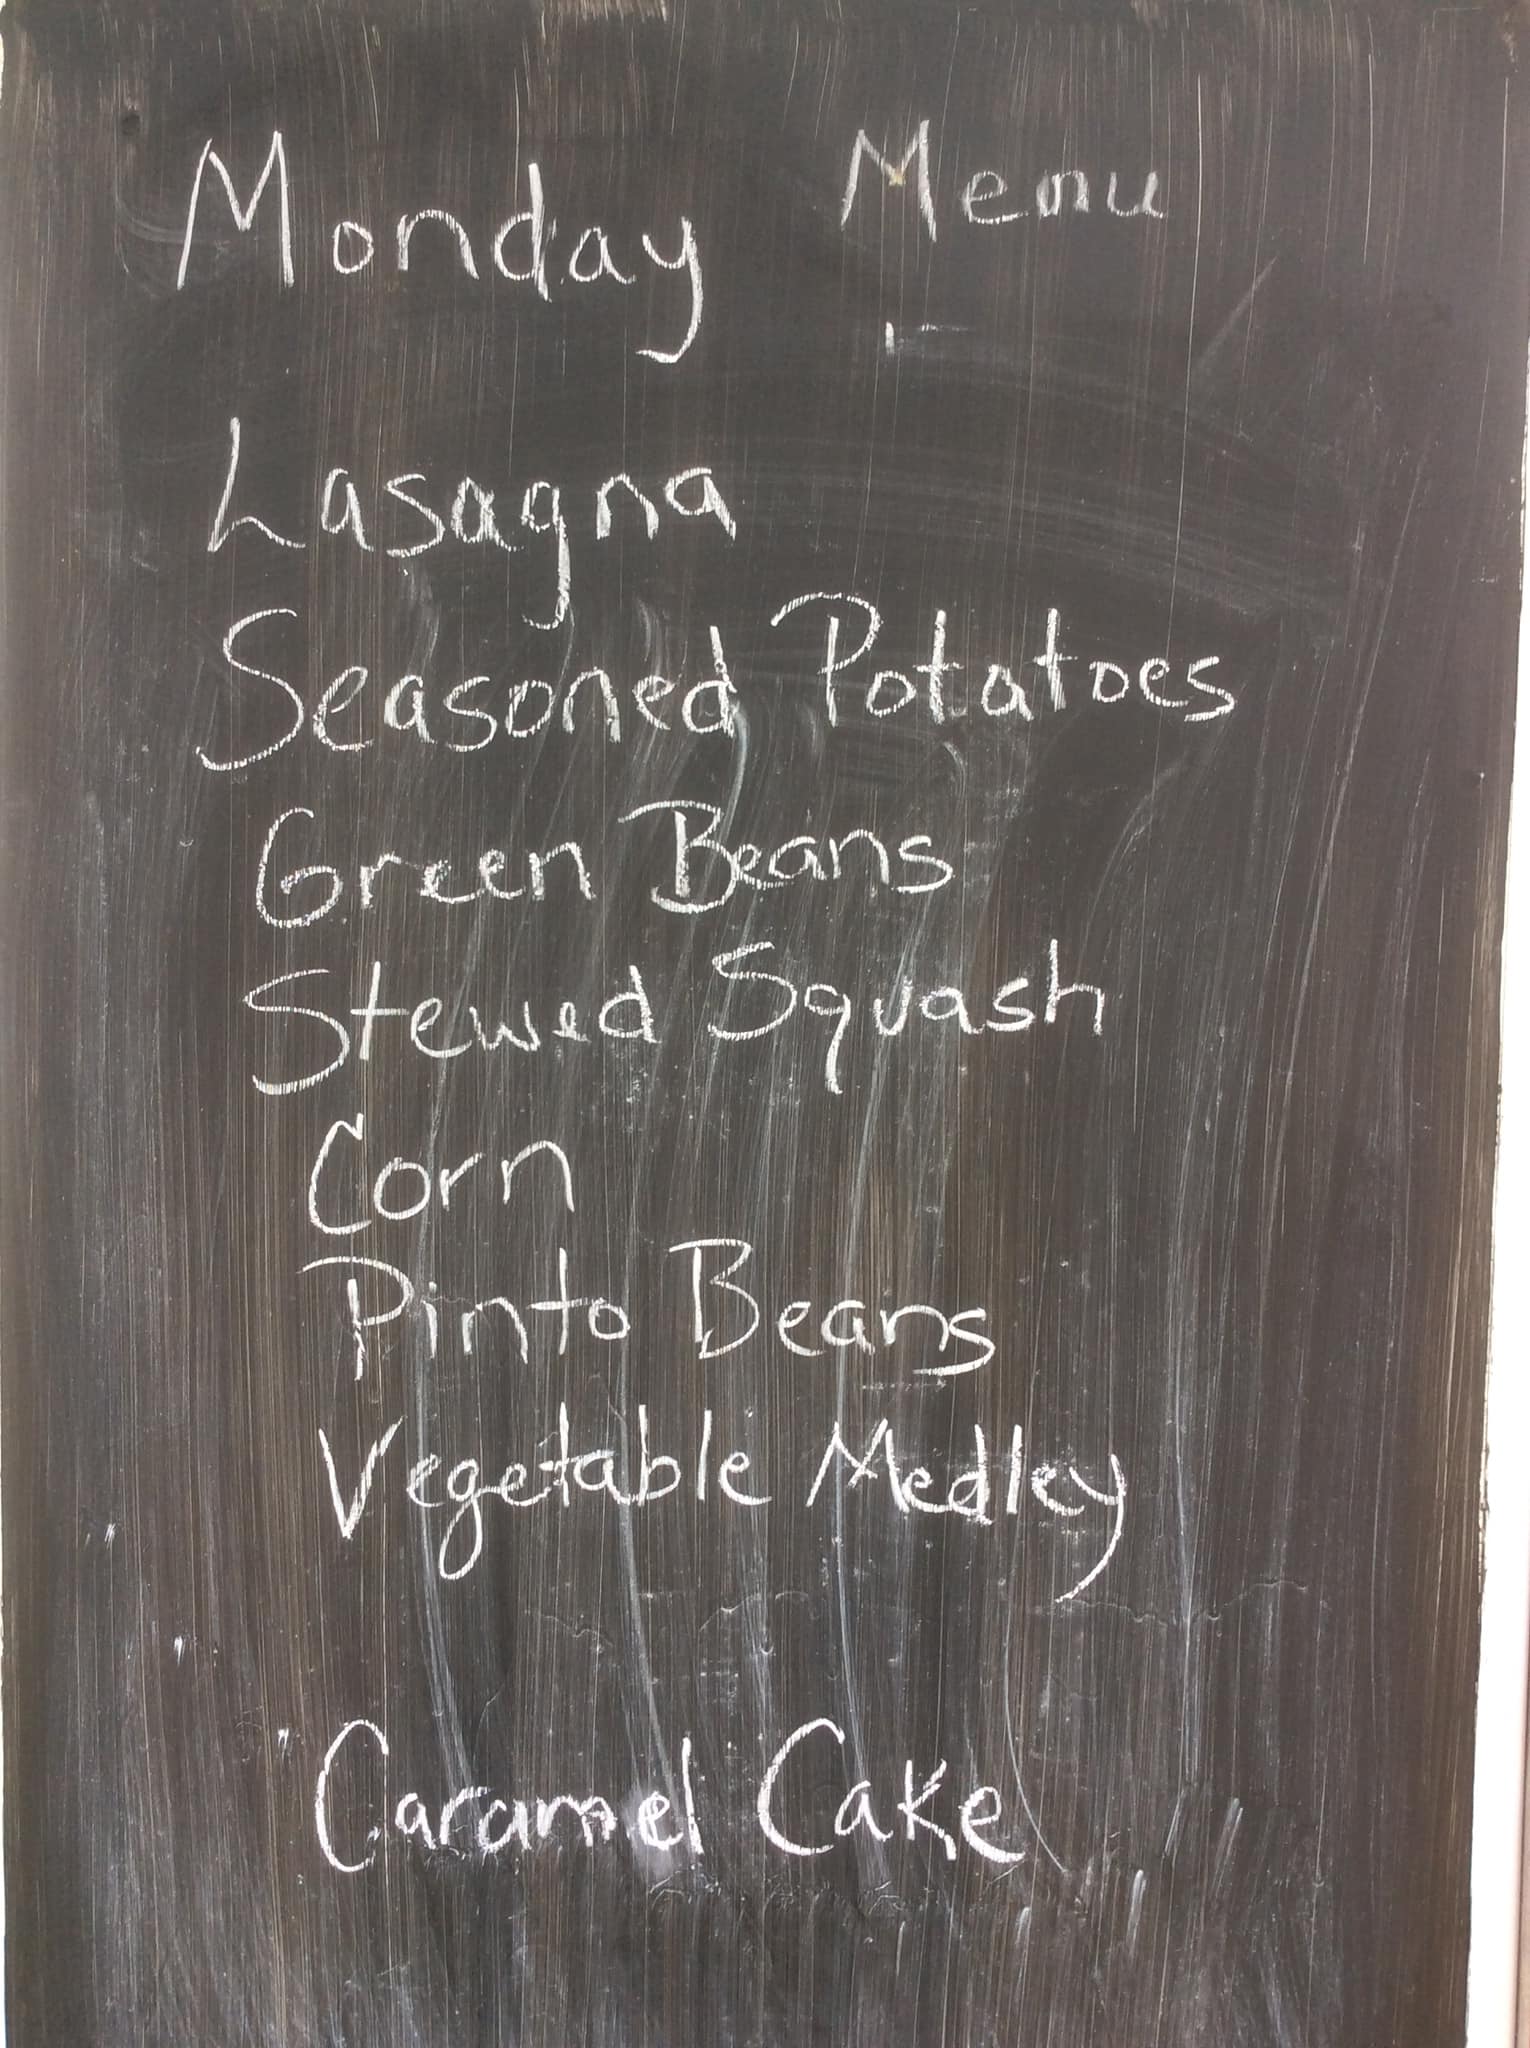 Monday Menu
Lasagna
Seasoned Potatoes
Green Beans
Stewed Squash
Corn
Pinto Beans
Vegetable Medley
Caramel Cake